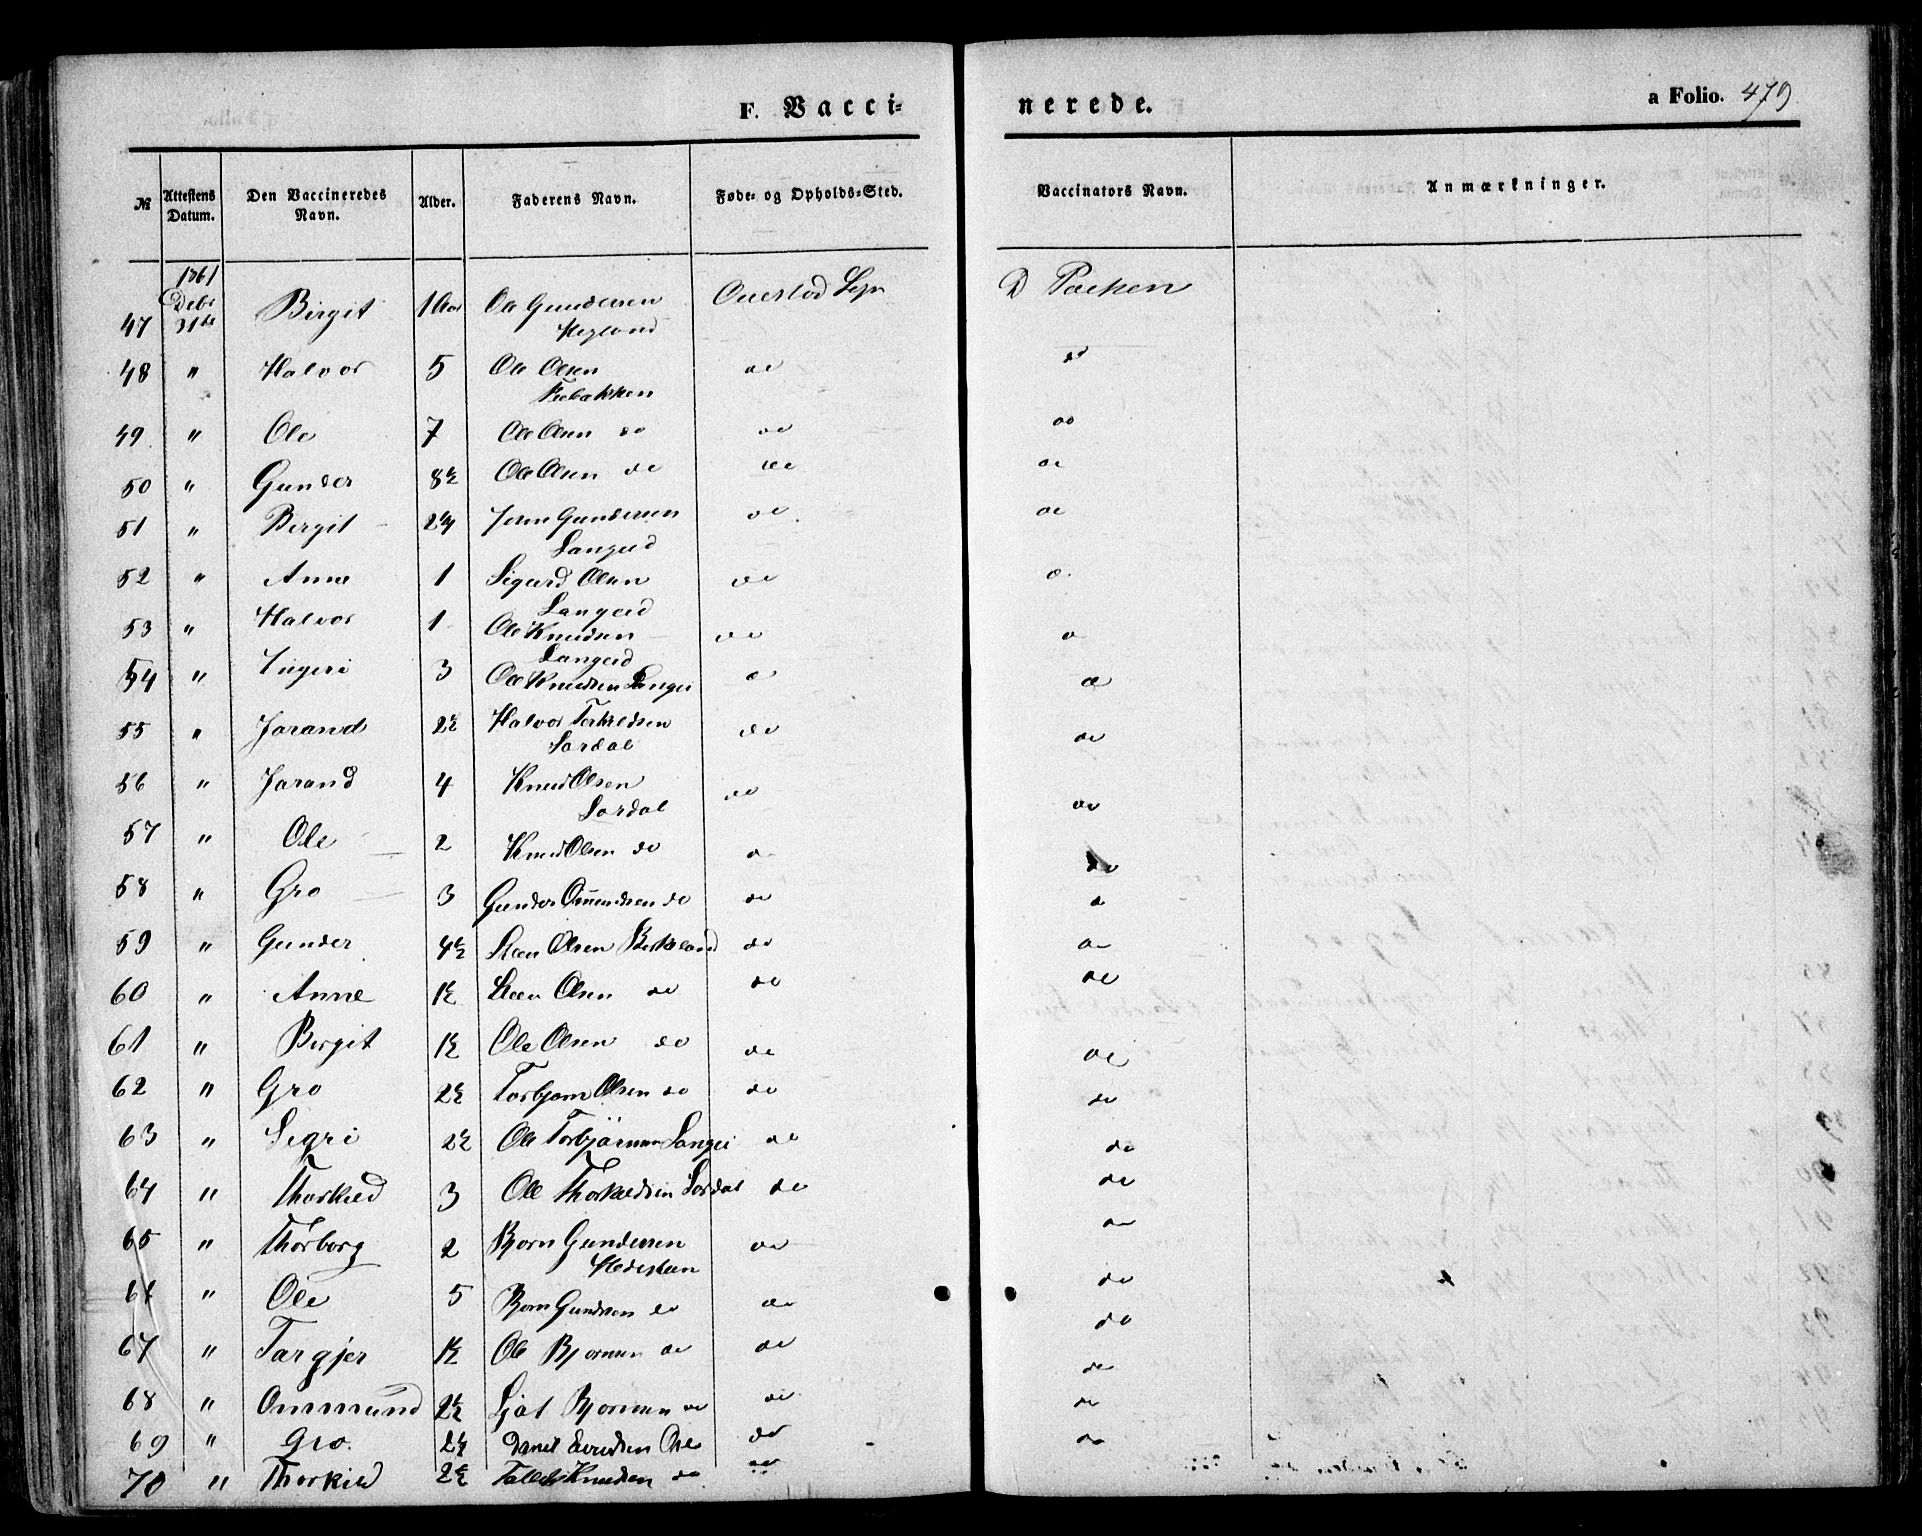 F. Vacci=
nerede.
a Folio. 479
№ Attestens Datum. Den Vaccineredes Navn. Alder. Faderens Navn. Føde- og Opholds-Sted. Vaccinators Navn. Anmærkninger.
1861
47 Debr 31te Birgit 1 Aar Ole Gundersen Sogn D
48 " Halvor 5 Ole Olsen do do
49 " Ole 7 Ole Olsen do do do
50 " Gunder 8½ Ole Olsen do do do
51 " Birgit Gundersen do do
Langeid
52 " Anne 1 Sigurd Olsen do
Langeid
53 " Halvor 1 Ole Knudsen do
Langeid
54 " Ingeri 3 Ole Knudsen Langei
55 " Jorand 2½ Halvor Terkeldsen do do
Lordal
56 " Jorand 4 Knud Olsen do do
Lordal
57 " Ole 2 Knud Olsen do do
58 " Gro 3 Gunder Omundsen do do
59 " Gunder 4½ Olsen Birkeland do
60 " Anne 1½ Olsen do do do
61 " Birgit 1½ Ole Olsen do do do
62 " Gro 2½ Torbjorn Olsen do do do
63 " Sigri 2½ Ole Torbjörnsen Langei do do
64 " Thorkild 3 Ole Thorkeldsen Lordal do do
65 " Thorborg 2 Bjorn Gundersen do
66 " Ole 5 Bjorn Gundersen do do do
67 " Targjer 1½ Ole Bjornsen do do do
68 " Ommund 2½ Ljot Bjornsen do do do
69 " Gro 2½ Daniel Ose do do
70 " Thorkild 2½ Knudsen do do